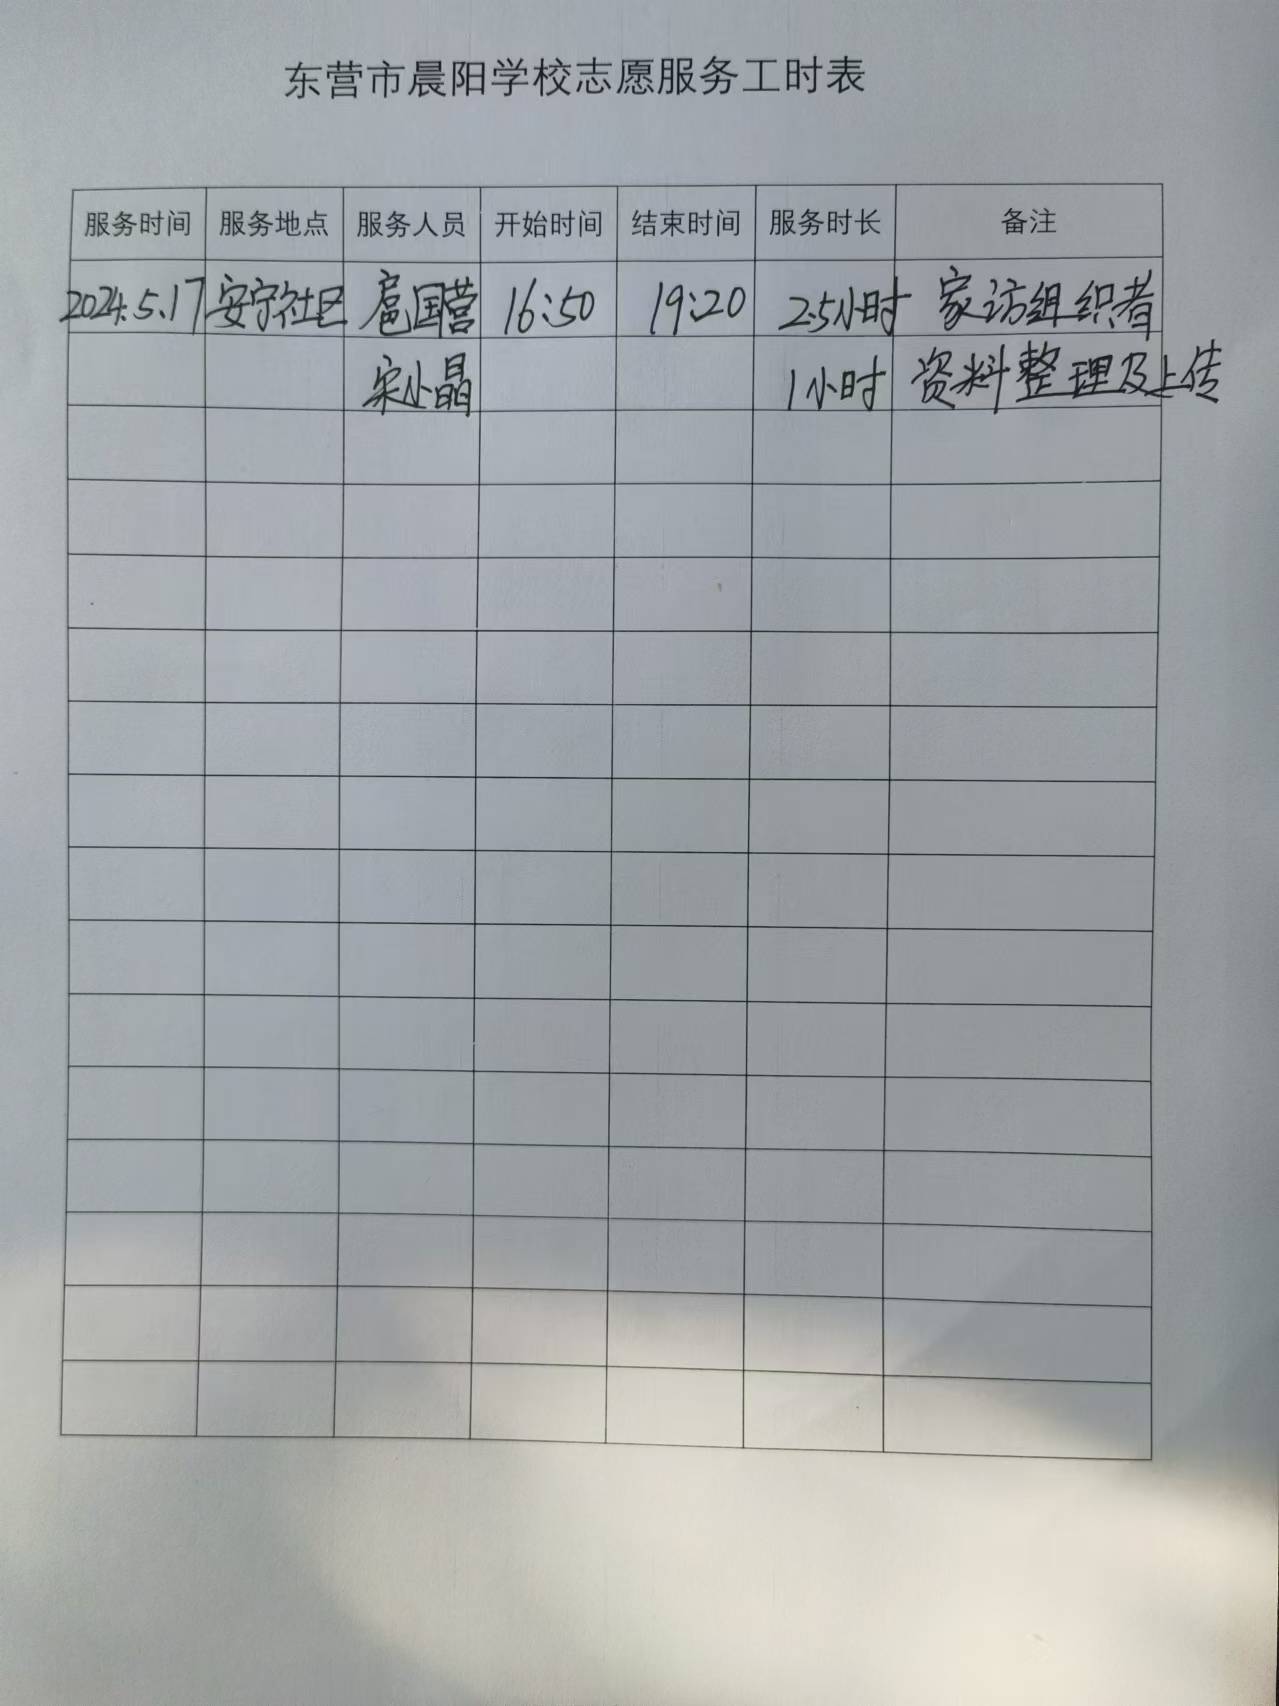 东营市晨阳学校志愿服务工时表
服务时间 服务地点 服务人员 开始时间 结束时间 服务时长 备注
2024.5.17 安宁社区 扈国营 16:50 19:20 2.5小时 家访组织者
宋小晶 1小时 资料整理及上传